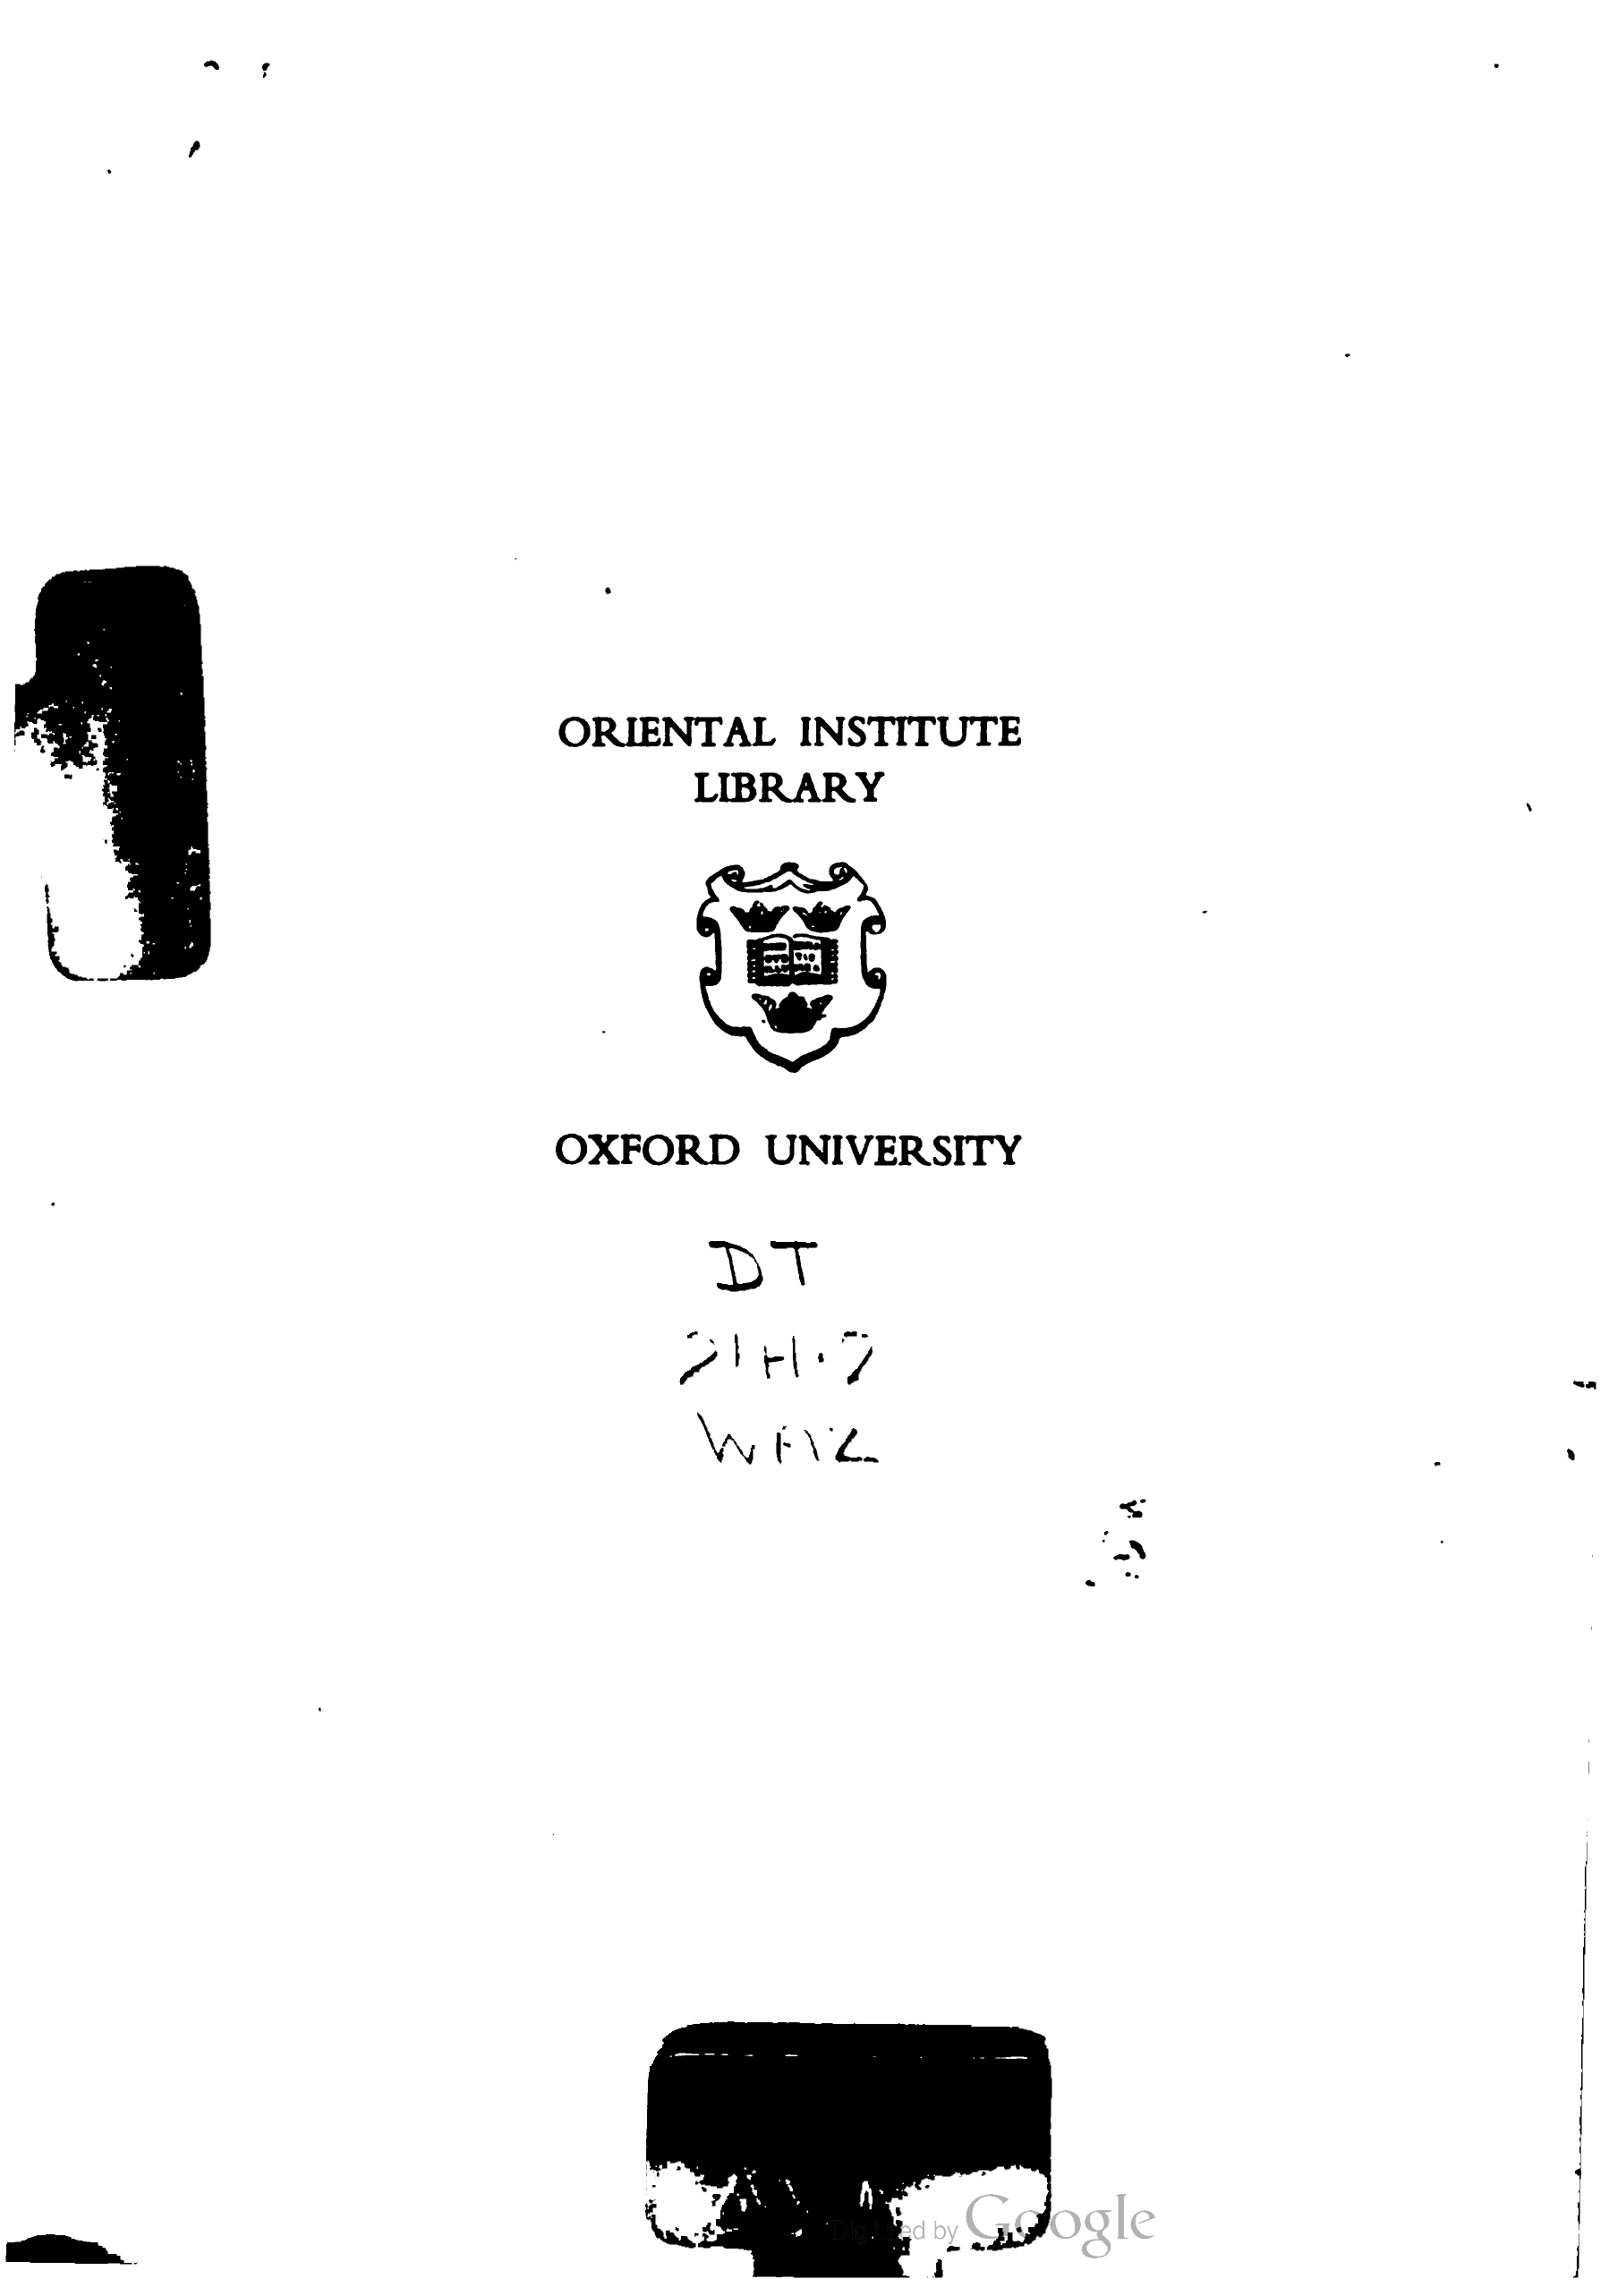 ORIENTAL INSTITUTE
LIBRARY
OXFORD UNIVERSITY
DT
Digitized by Google